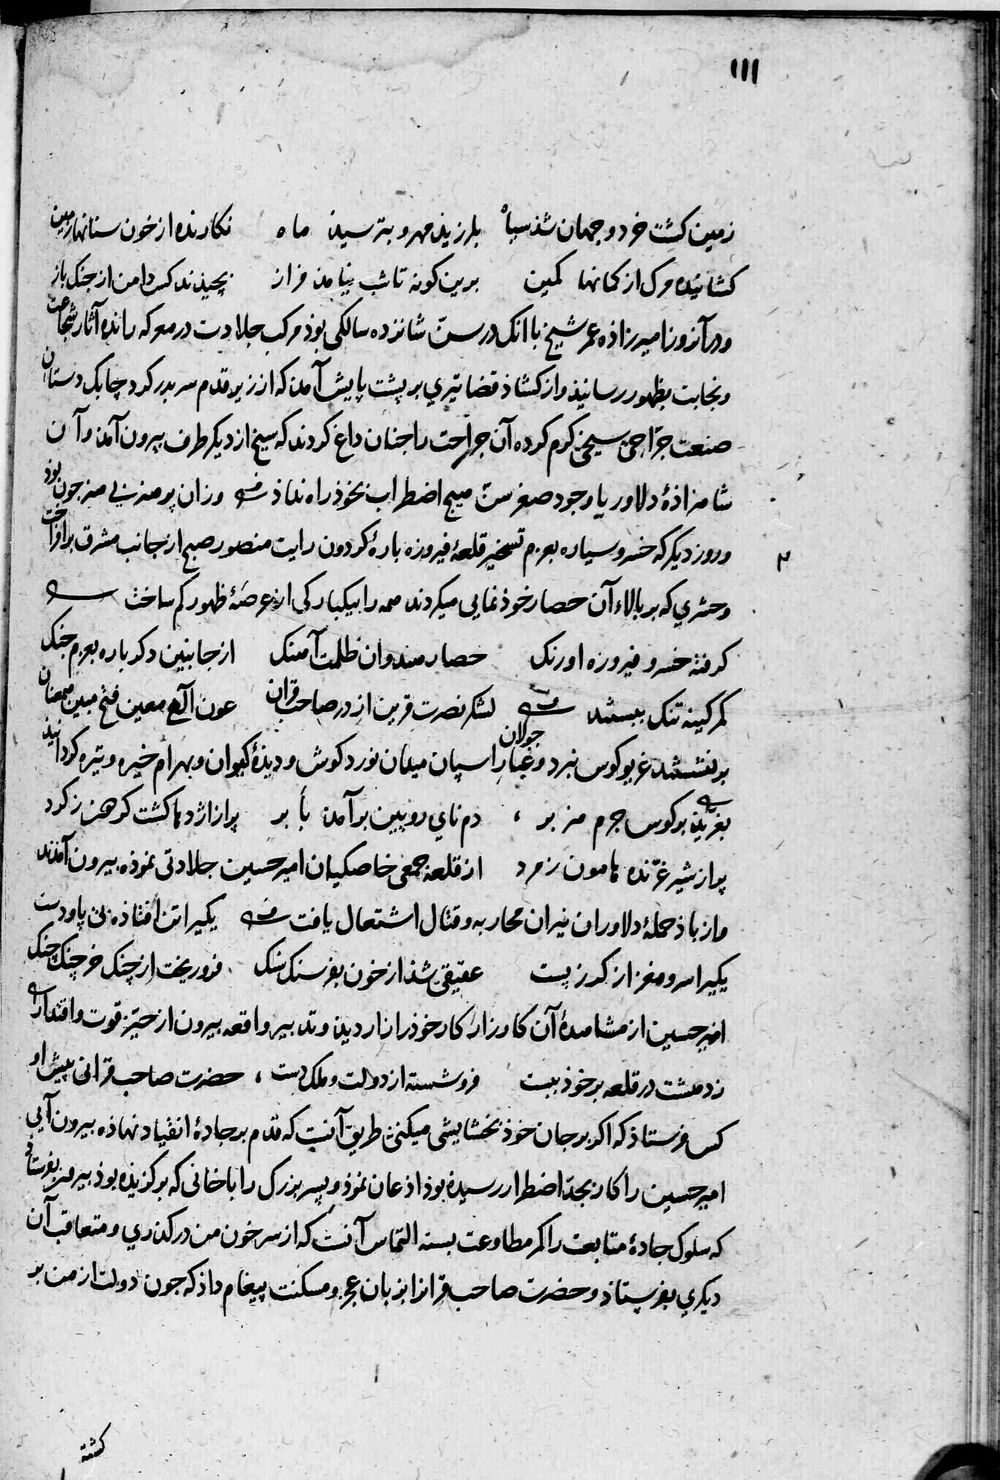 ١١١
زمین کشت خرد و جهان شد سیاه بلرزید مهر و بترسید ماه نکارنده از خون سنانها زمین
کشاینده مرک از کمانها کمین برین کونه تا شب نیامد فراز نچیدند کس دامن از جنک باز
و در آن روز امیرزاده عمر شیخ با انک در سن شانزده سالکی بوذ مرکب جلادت در معرکه رانده آثار شجاعت
و نجابت بظهور رسانید و از کشاد قضا تیری بر پشت پایش آمد که از زیر قدم سر بدر کرد چابک دستان
صنعت جراحی سیخی کرم کرده آن جراحت را جنان داغ کردند که سیخ از دیکر طرف بیرون آمد و آن
شاهزاذهٔ دلاور با وجود صغر سن هیچ اضطراب بخوذ راه نداذ وزان پر هنر بی هنر جون بوذ
و روز دیکر که خسرو سیاره بعزم تسخیر قلعهٔ فیروزه بارهٔ کردون رایت منصور صبح از جانب مشرق برافراخت
و حشری که بر بالاء آن حصار خوذنمایی میکردند همه را بیکبارکی از عرصهٔ ظهور کم ساخت
کرفته خسرو فیروزه اورنک حصار هندوان ظلمت آهنک از جانبین دکرباره بعزم جنک
کمر کینه تنک ببستند لشکر نصرت قرین از در صاحب قران عون آلهی معین فتح مبین همعنان
برنشستند غریو کوس نبرد و غبار جولان اسپان میدان نورد کوش و دیدهٔ کیوان و بهرام خیره و تیره کردانید
بغرید بر کوس جرم هزبر ، دم نای رویین برآمد بابر پر از اژدها کشت کوه از کرد
پر از شیر غرنده هامون زمرد از قلعه جمعی خاصکیان امیر حسین جلادتی نموذه بیرون آمدند
و از باد حملهٔ دلاوران نیران محاربه و قتال اشتعال یافت یکیرا تن افتاذه بی پا و دست
یکیرا سر و مغز از کرز پست عقیقی شد از خون بفرسنک سنک فرو ریخت از جنک خرچنک چنک
امیر حسین از مشاهدهٔ آن کارزار کار خوذ را زار دید و تدبیر واقعه بیرون از حیّز قوت و اقتدار
ز دهشت در قلعه بر خوذ ببست فرو شسته از دولت و ملک دست ، حضرت صاحب قرانی پیش او
کس فرستاذ که اکر بر جان خوذ بخشایشی میکنی طریق آنست که قدم بر جادهٔ انقیاد نهاذه بیرون آیی
امیر حسین را کار بحدّ اضطرار رسیده بوذ اذعان نموذ و پسر بزرک را با خانی که بر کزیده بوذ بیرون بفرستاذ
که سلوک جادهٔ متابعت را کمر مطاوعت بسته التماس آنست که از سر خون من درکذری و متعاقب آن
دیکری بفرستاذ و حضرت صاحب قرانرا بزبان عجز و مسکنت پیغام داذ که جون دولت از من بر
کشته